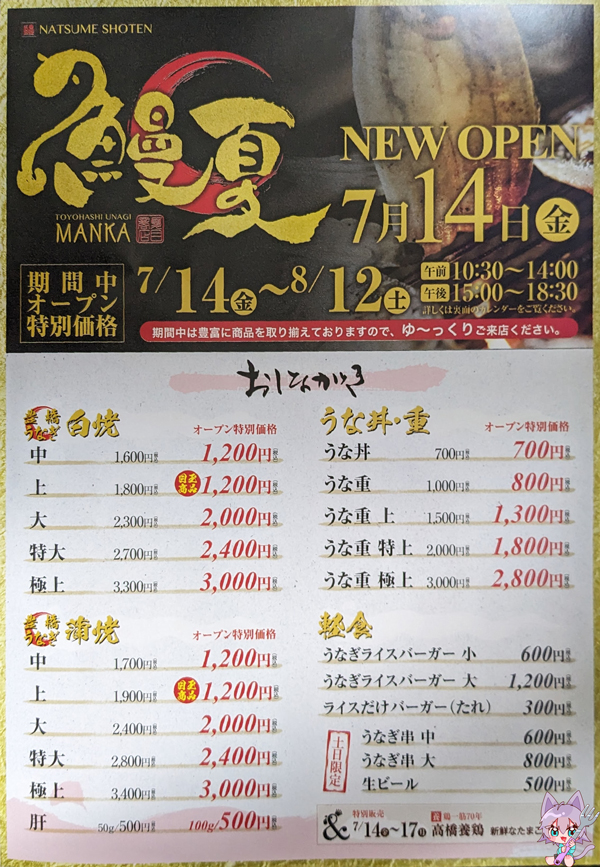 NATSUME SHOTEN
鰻夏
TOYOHASHI UNAGI
MANKA
NEW OPEN
7月14日金
期間中
オープン
特別価格
7/14金〜8/12土
午前10:30〜14:00
午後15:00〜18:30
詳しくは裏面のカレンダーをご覧ください。
期間中は豊富に商品を取り揃えておりますので、ゆ〜っくりご来店ください。
おしながき
豊橋うなぎ 白焼 オープン特別価格
中 1,600円税込 1,200円税込
上 1,800円税込 目玉商品 1,200円税込
大 2,300円税込 2,000円税込
特大 2,700円税込 2,400円税込
極上 3,300円税込 3,000円税込
豊橋うなぎ 蒲焼 オープン特別価格
中 1,700円税込 1,200円税込
上 1,900円税込 目玉商品 1,200円税込
大 2,400円税込 2,000円税込
特大 2,800円税込 2,400円税込
極上 3,400円税込 3,000円税込
肝 50g/500円税込 100g/500円税込
うな丼・重 オープン特別価格
うな丼 700円税込 700円税込
うな重 1,000円税込 800円税込
うな重 上 1,500円税込 1,300円税込
うな重 特上 2,000円税込 1,800円税込
うな重 極上 3,000円税込 2,800円税込
軽食
うなぎライスバーガー 小 600円税込
うなぎライスバーガー 大 1,200円税込
ライスだけバーガー(たれ) 300円税込
土日限定
うなぎ串 中 600円税込
うなぎ串 大 800円税込
生ビール 500円税込
& 特別販売
7/14金〜17月
鶏一筋70年
高橋養鶏 新鮮なたまご